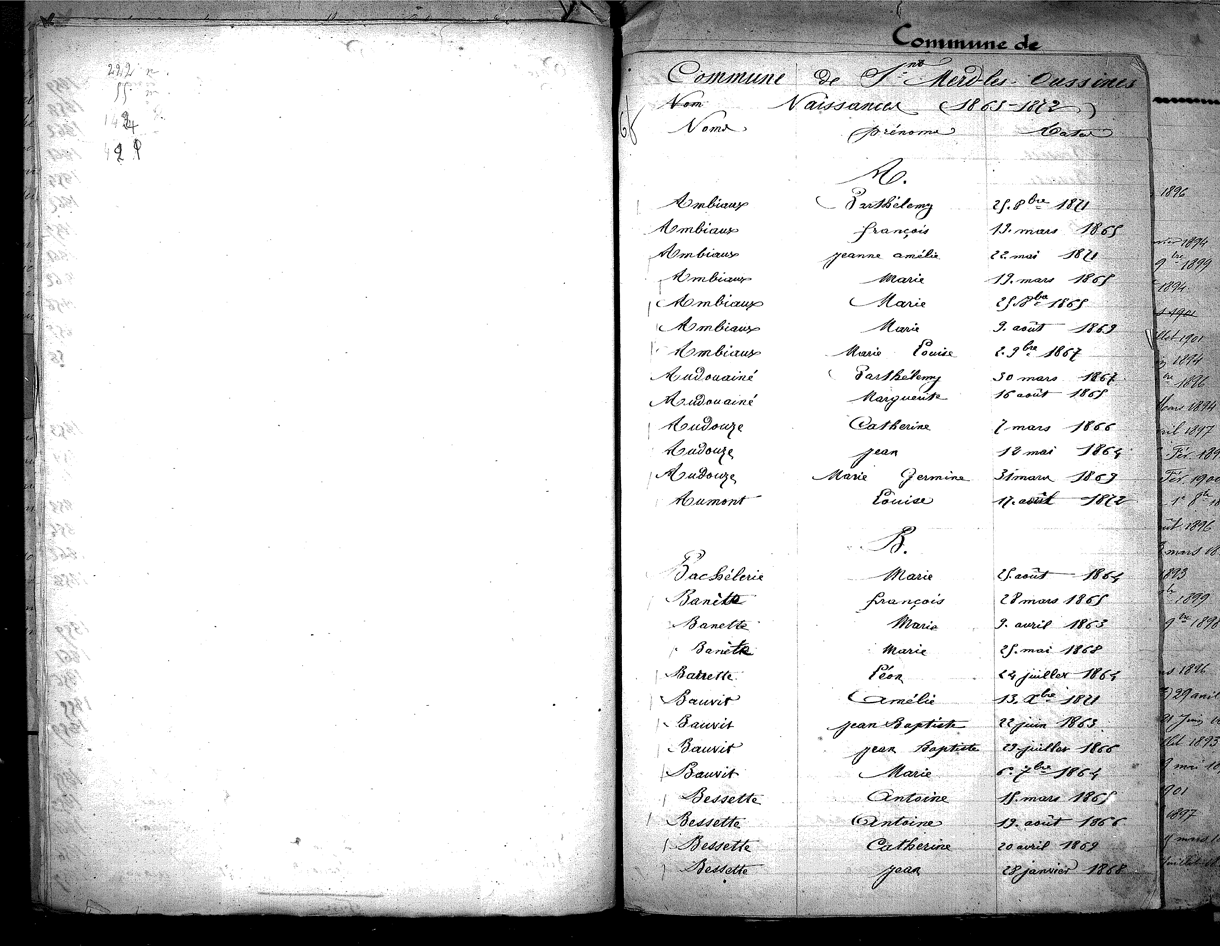 222 n
55
Commune de
Commune de St Merd-les-Oussines
Nom Naissances (1863-1872)
Noms prénoms Dates
A.
Ambiaux Barthélemy 25. 8bre 1871
Ambiaux françois 13. mars 1865
Ambiaux jeanne amélie 22 mai 1871
Ambiaux Marie 19. mars 1865
Ambiaux Marie 25 8bre 1865
Ambiaux Marie 9. août 1869
Ambiaux Marie Louise 2. 9bre 1867
Audouainé Barthélemy 30 mars 1867
Audouainé Marguerite 16 août 1865
Audouze Catherine 7 mars 1866
Audouze jean 12 mai 1864
Audouze Marie Germine 31 mars 1869
Aumont Louise 17. août 1872
B.
Bachélerie Marie 25. août 1864
Banette françois 28 mars 1865
Banette Marie 9. avril 1863
Banette Marie 25. mai 1868
Barrette Léon 24 juillet 1864
Bauvit Amélie 13. Xbre 1871
Bauvit jean Baptiste 22 juin 1863
Bauvit jean Baptiste 23 juillet 1866
Bauvit Marie 6. 7bre 1864
Bessette Antoine 15. mars 1865
Bessette Antoine 19. août 1866
Bessette Catherine 20 avril 1869
Bessette jean 28 janvier 1868
1896
1894
9bre 1899
1894
1901
1894
1896
Mars 1894
1897
Fév. 189
Fév. 190
1896
mars 18
1893
1899
9bre 1898
1896
29 avril
Juin
1893
mai 18
1901
1897
mars 18